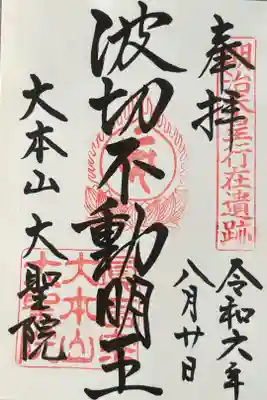 奉拝
明治天皇行在遺跡
令和六年
八月廿日
波切不動明王
大本山大聖院